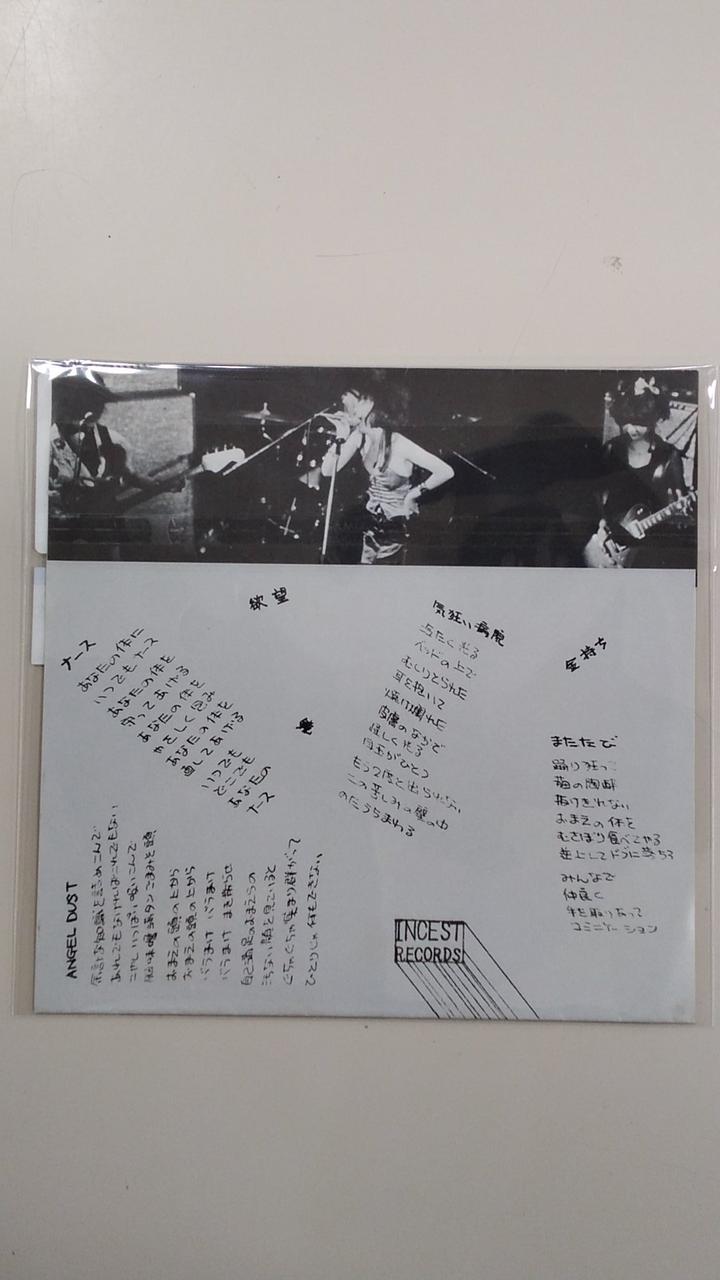 欲望
ナース
あなたの体に
いつでもナース
あなたの体を
守ってあげる
あなたの体を
やさしく包みよ
あなたの体を
直してあげる
いつでも
どこでも
あなたの
ナース
気狂い病院
冷たく光る
ベッドの上で
むしりとられた
耳を抱いて
焼け爛れた
皮膚のなかで
怪しく光る
目玉がひとつ
もう2度と出られない
この苦しみの壁の中
のたうちまわる
金持ち
またたび
踊り狂って
猫の陶酔
振りきれない
おまえの体を
むさぼり食べてやる
みんなで
仲良く
手を取りあって
コミニケーション
ANGEL DUST
余計な知識を詰めこんで
あれでもなければこれでもない
いっぱい吸いこんで
脳味噌満タンごみみと頭
おまえの頭の上から
おまえの頭の上から
バラまけ バラまけ
バラまけ まき散らせ
自己満足のおまえらの
汚ない顔を見ていると
ぐちゃぐちゃ集まり群がって
ひとりじゃ何もできない
INCEST
RECORDS